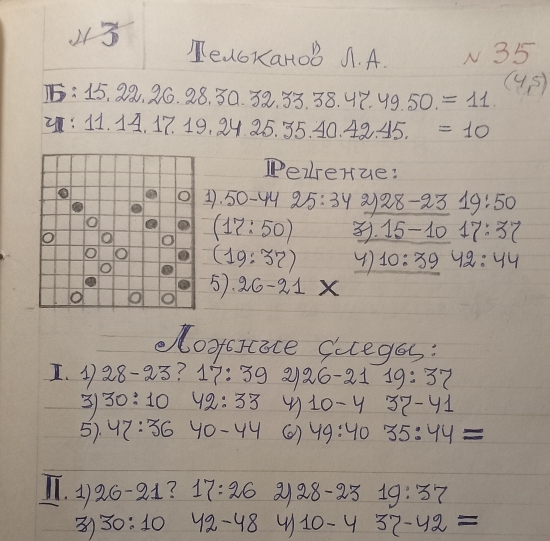 №3
Тельканов Л.А.
№ 35
(4,5)
Б: 15.22.26.28.30.32.33.38.47.49.50. = 11.
Ч: 11.14.17.19.24.25.35.40.42.45. = 10
Решение:
1).50-44 25:34 2)28-23 19:50
(17:50) 3).15-10 17:37
(19:37) 4)10:39 42:44
5).26-21 X
Ложные следы:
I. 1)28-23? 17:39 2)26-21 19:37
3)30:10 42:33 4)10-4 37-41
5).47:36 40-44 6)49:40 35:44 =
II. 1)26-21? 17:26 2)28-23 19:37
3)30:10 42-48 4)10-4 37-42 =